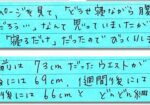 ページを見て、「どうせ寝ながら
だろう…」なんて思っていましたが
「寝るだけ」だったのでびっくりしま
前は 73cm だったウエストが
には 69cm 1週間後に
後には 66cm と どんどん細